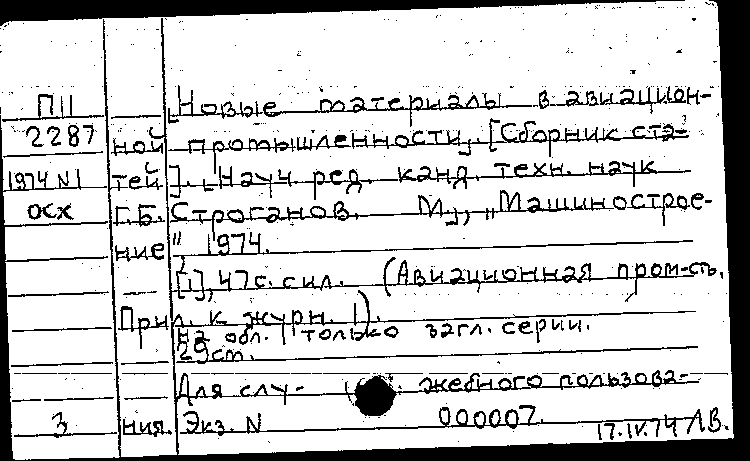 П11 [Новые материалы в авиацион-
2287 ной промышленности]. [Сборник ста-
1974 N1 тей]. [Науч. ред. канд. техн. наук
осх Г.Б. Строганов. М.], "Машинострое-
ние" 1974.
[1], 47с. с ил. (Авиационная пром-сть.
Прил. к журн. 1).
На обл. только загл. серии.
29см.
Для слу- жебного пользова-
3 ния. Экз. N 000007.
17.IV.74 ЛВ.